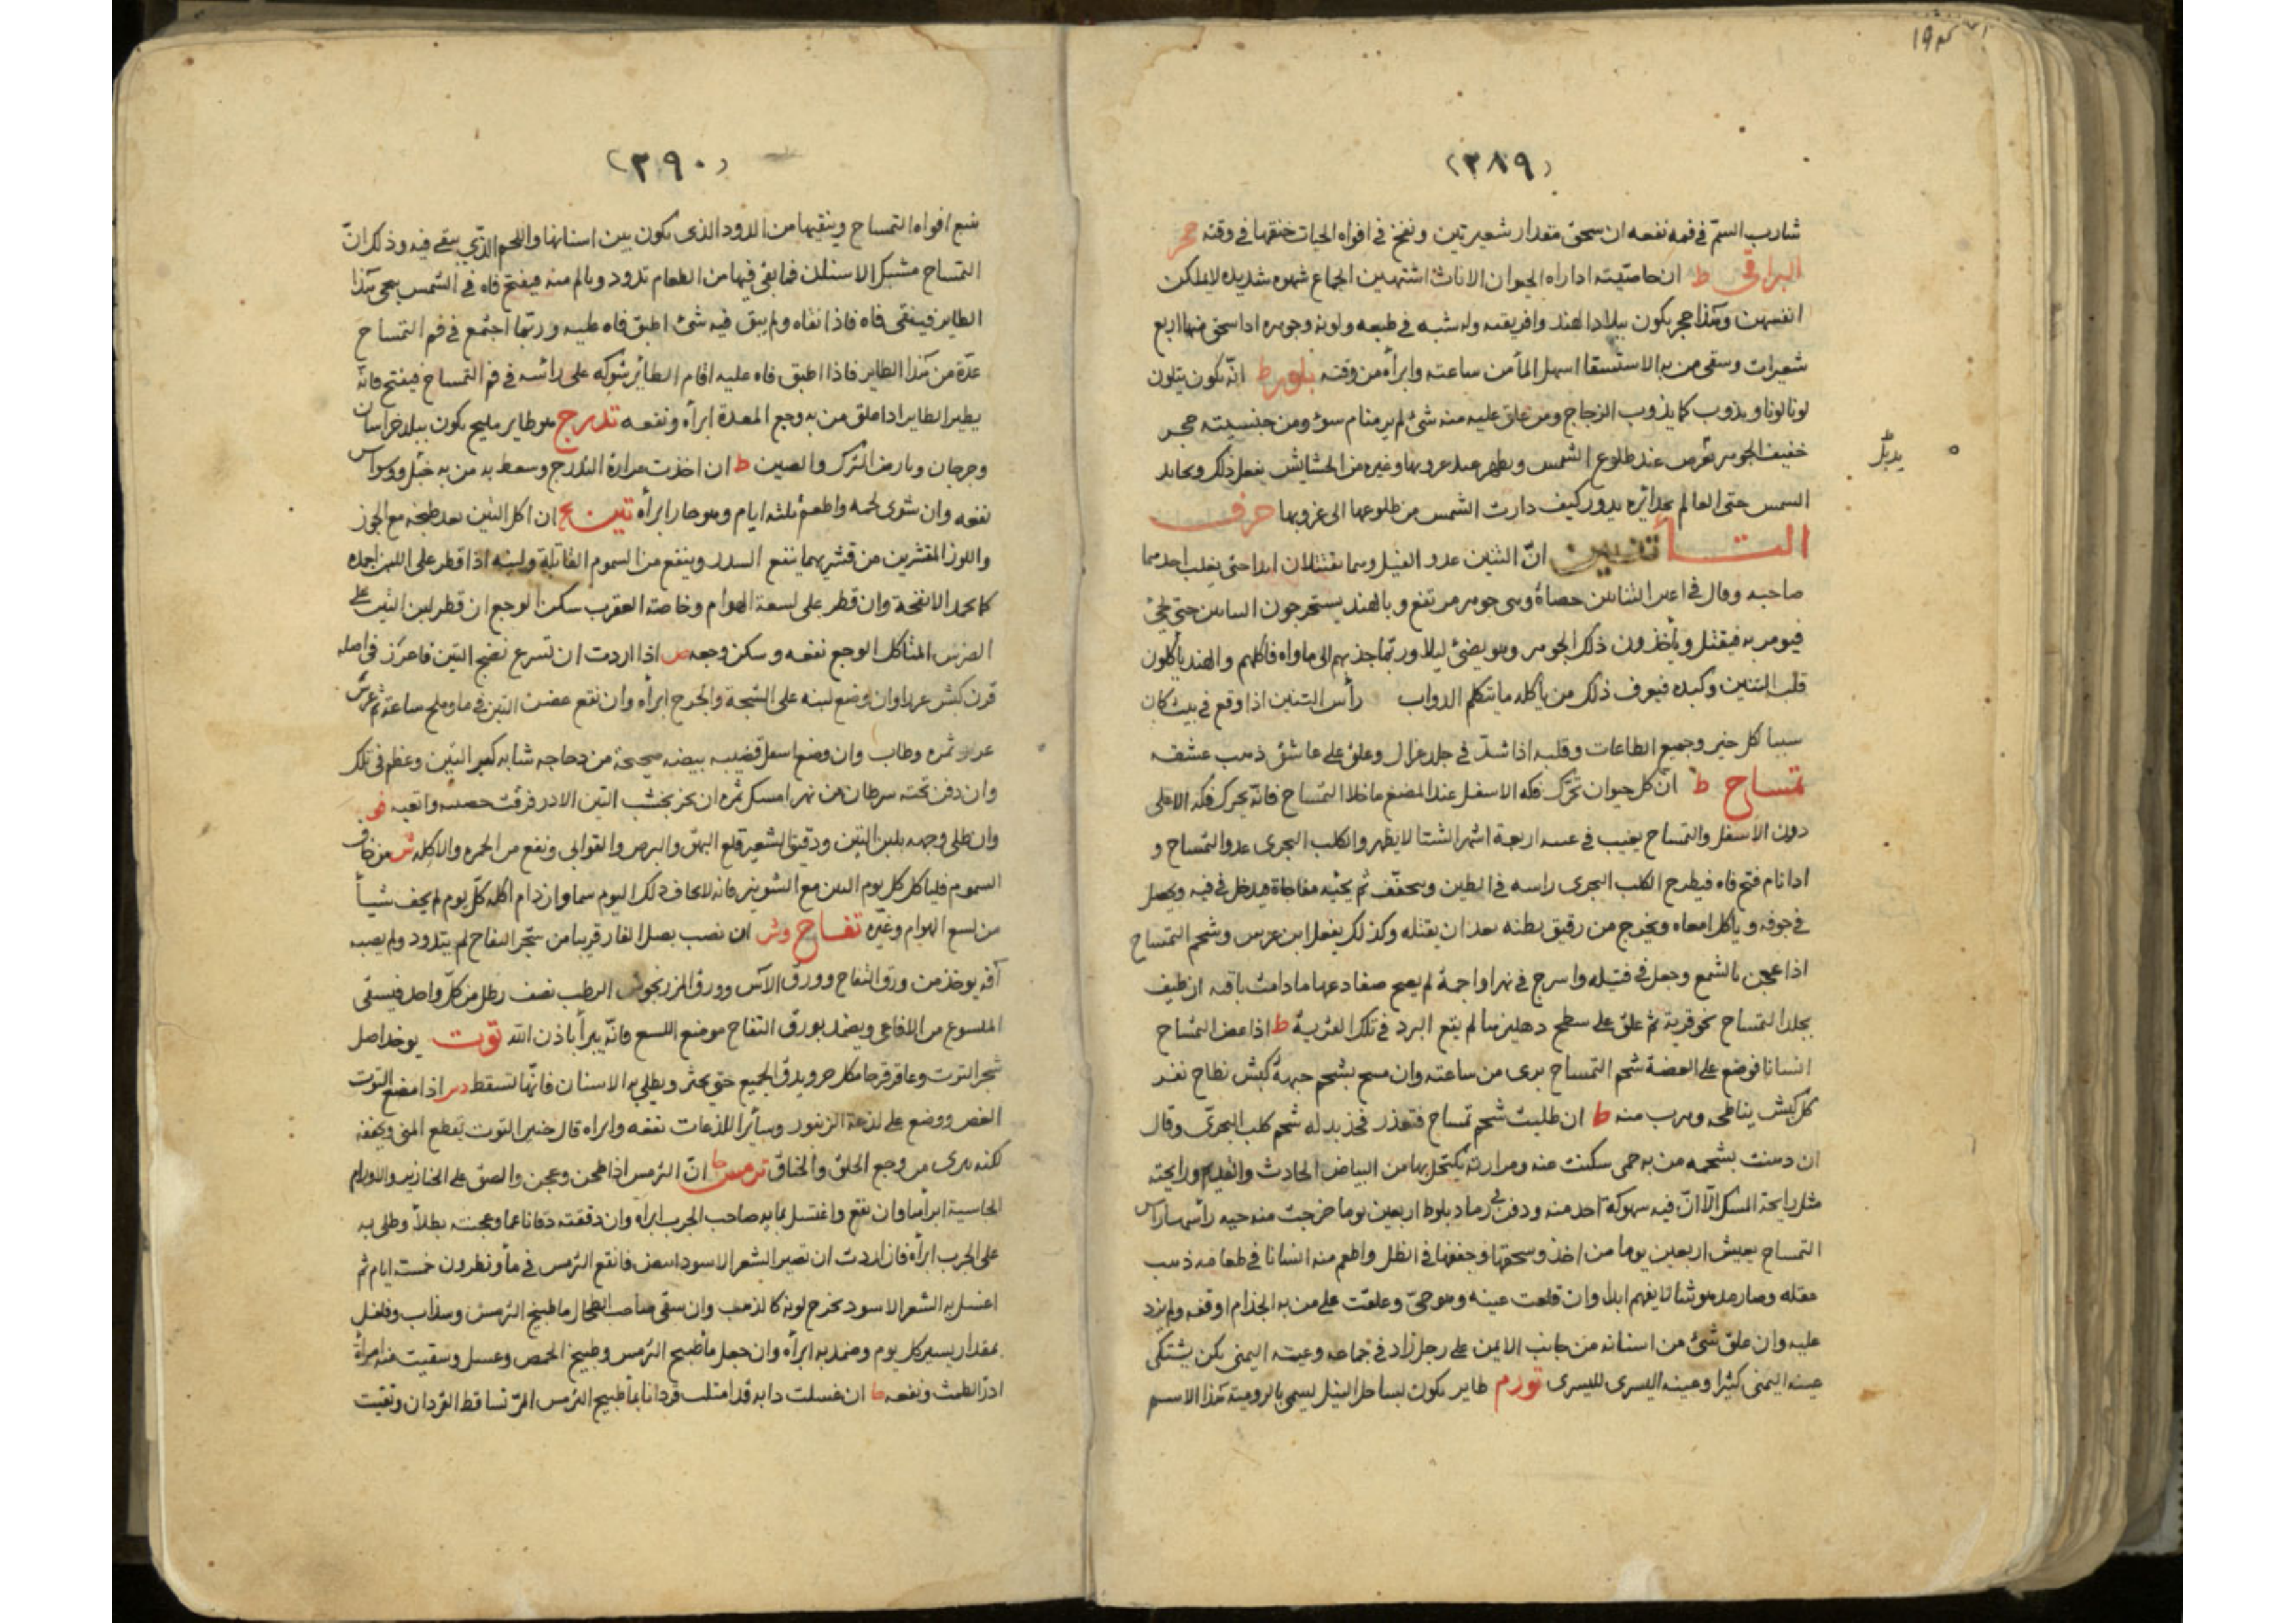 (٣٨٩)
شارب السمّ فى فمه نفعه ان سحق مقدار شعيرتين ونفخ فى افواه الحيات خنقها فى وقته حجر
البراقى ط ان خاصيته اذا راه الحيوان الاناث اشتهين الجماع شهوه شديده لا يملكن
انفسهن وهذا حجر يكون ببلاد الهند وافريقيه وله شبه فى طبعه ولونه وجوهره اذا سحق منها اربع
شعيرات وسقى من به الاستسقا اسهل المأ من ساعته وابرأه من وقته بلور ط انّه يكون يتلون
لونا لونا ويذوب كما يذوب الزجاج ومن علق عليه منه شئ لم ير منام سوء ومن جنسيته حجر
خفيف الجوهر عند طلوع الشمس وغيره من الحشايش يفعل ذلك
الشمس حتى يدور كيف دارت الشمس من طلوعها الى غروبها حرف
التأ تنين انّ التنين عدو الفيل وهما يقتتلان ابدا حتى يغلب احدهما
صاحبه وقال فى اعين حصاة وهى جوهر مرتفع وبالهند يستخرجون حتى
به فيقتل ويأخذون ذلك الجوهر وهو يضئ ليلا وربّما جذبهم الى ماواه فاكلهم والهند يأكلون
قلب التنين وكبده فيعرف ذلك من يأكله ما يتكلم الدواب رأس التنين اذا وقع فى بيت كان
سببا لكل خير وجميع الطاعات وقلبه اذا شدّ فى جلد غزال وعلق على عاشق ذهب عشقه
تمساح ط انّ كل حيوان تحرّك فكه الاسفل عند المضغ ما خلا التمساح فانّه يحرك فكه الاعلى
دون الاسفل والتمساح يغيب فى اربعة اشهر الشتا لا يظهر والكلب البحرى عدو التمساح و
اذا نام فتح فاه فيطرح الكلب البحرى راسه فى الطين ثم مفاجاة فيدخل فى فيه ويحصل
فى جوفه ويأكل امعاه ويخرج من رقيق بطنه بعد ان يقتله وكذلك يفعل ابن عرس وشحم التمساح
اذا عجن بالشمع وجعل فى فتيله واسرج فى نهر او اجمة لم يصح ضفادعها ما دامت باقيه ان طيف
بجلد التمساح نحو قرية ثم علق على سطح دهليزها لم يقع البرد فى تلك القرية ط اذا عض التمساح
انسانا فوضع على العضة شحم التمساح برى من ساعته وان مسح بشحم جبهة كبش نطاح نفر
كل كبش يناطحه وهرب منه ط ان طلبت شحم تمساح فتعذر فخذ بدله شحم كلب البحرىّ وقال
ان دهنت بشحمه من به حمى سكنت عنه ومرارته يكتحل بها من البياض الحادث والقديم ورايحته
مثل رايحة المسك الّا انّ فيه سهوكة احد منه ودفن فى رماد بلوط اربعين يوما خرجت منه حيه رأسها راس
التمساح يعيش اربعين يوما من اخذ وسحقها وجففها فى الظل واطعم منه انسانا فى طعامه ذهب
عقله وصار مدهوشا لا يفهم ابدا وان قلعت عينه وهو حىّ وعلقت على من به الجذام اوقفه ولم يزد
عليه وان علق شئ من اسنانه من جانب الايمن على رجل زاد فى جماعه وعينه اليمنى لمن يشتكى
عينه اليمنى كثيرا وعينه اليسرى لليسرى تورم طاير يكون بساحل النيل يسمى بالرومية هذا الاسم
(٣٩٠)
يتبع افواه التمساح وينقيها من الدود الذى يكون بين اسنانها واللحم الذّى يبقى فيه وذلك انّ
التمساح مشبك الاسنان فما بقى فيها من الطعام تدود وبالم منه فيفتح فاه فى الشمس يجى هذا
الطاير فينقى فاه فاذا نقاه ولم يبق فيه شئ اطبق فاه عليه وربّما اجتمع فى فم التمساح
عدّة من هذا الطاير فاذا اطبق فاه عليه اقام الطائر شوكه على رأسه فى فم التمساح فيفتح فانّه
يطير الطاير اذا علق من به وجع المعدة ابرأه ونفعه تدرج هو طاير مليح يكون ببلد خراسان
وجرجان وبارض الترك والصين ط ان اخذت مرارة التدرج وسعط به من به خبل ووسواس
نفعه وان شوى لحمه واطعم ثلثه ايام وهو حار ابرأه تين ان اكل التين بعد طبخه مع الجوز
واللوز المقشرين من قشريهما ينفع السدر وينفع من السموم القاتلة ولبنه اذا قطر على اللبن اجمده
كما يجمد الانفحة وان قطر على لسعة الهوام وخاصة العقرب سكن الوجع ان قطر لبن التين على
الضرس المتاكل الوجع نفعه وسكن وجعه ص اذا اردت ان تسرع نضج التين فاغرز فى اصله
قرن كبش وان وضع لبنه على الشجة والجرح ابرأه وان نقع غصن التين فى ما وملح ساعة ثم غرس
ثمره وطاب وان وضع اسفل قضيبه بيضه صحيحة من دجاجه شابه كبر التين وعظم فى تلك
وان دفن تحته سرطان من نهر امسك ثمره ان بخر بخشب التين
وان طلى وجهه بلبن التين ودقيق الشعير قلع البهق والبرص والقوابى ونفع من الحمره والاكله من خاف
السموم فليأكل كل يوم التين مع الشونيز فانه لا يخاف ذلك اليوم سما وان دام اكله كلّ يوم لم يخف شيأ
من لسع الهوام وغيره تفاح ان نصب بصل الفار قريبا من شجر التفاح لم يتدود ولم يصبه
آفه يوخذ من ورق التفاح وورق الآس وورق المرزنجوش الرطب نصف رطل من كلّ واحد فيسقى
الملسوع من الافاعى ويضمد بورق التفاح موضع اللسع فانّه يبرأ باذن الله توت يوخذ اصل
شجر التوت وعاقرقرحا ويدق الجميع حتى يختر ويطلى به الاسنان فانّها تسقط اذا مضغ التوت
الغض ووضع على لذعة الزنبور وسائر اللذعات نفعه وابراه قال خنير التوت يقطع المنى ويجففه
لكنه يبرى من وجع الحلق والخناق ترمس انّ الترمس اذا طحن وعجن والصق على الخنازير والاورام
الجاسية ابرأها وان نقع واغتسل بمايه صاحب الجرب ابرأه وان دققته دقا ناعما وعجنته بطلاً وطلى به
على الجرب ابرأه فان اردت ان تصير الشعر الاسود ابيض فانقع الترمس فى مأ ونطرون خمسة ايام ثم
اغسل به الشعر الاسود تخرج لونه كالذهب وان سقى صاحب الطحال ما طبيخ الترمس وسذاب وفلفل
بمقدار يسير كل يوم وضمد به ابرأه وان جعل مأ طبيخ الترمس وطبيخ الحمص وعسل وسقيت منه امرأة
ادرّ الطمث ونفعه ان غسلت دابه قد امتلت قردانا بمأ طبيخ الترمس المرّ تساقط القردان ونقيت